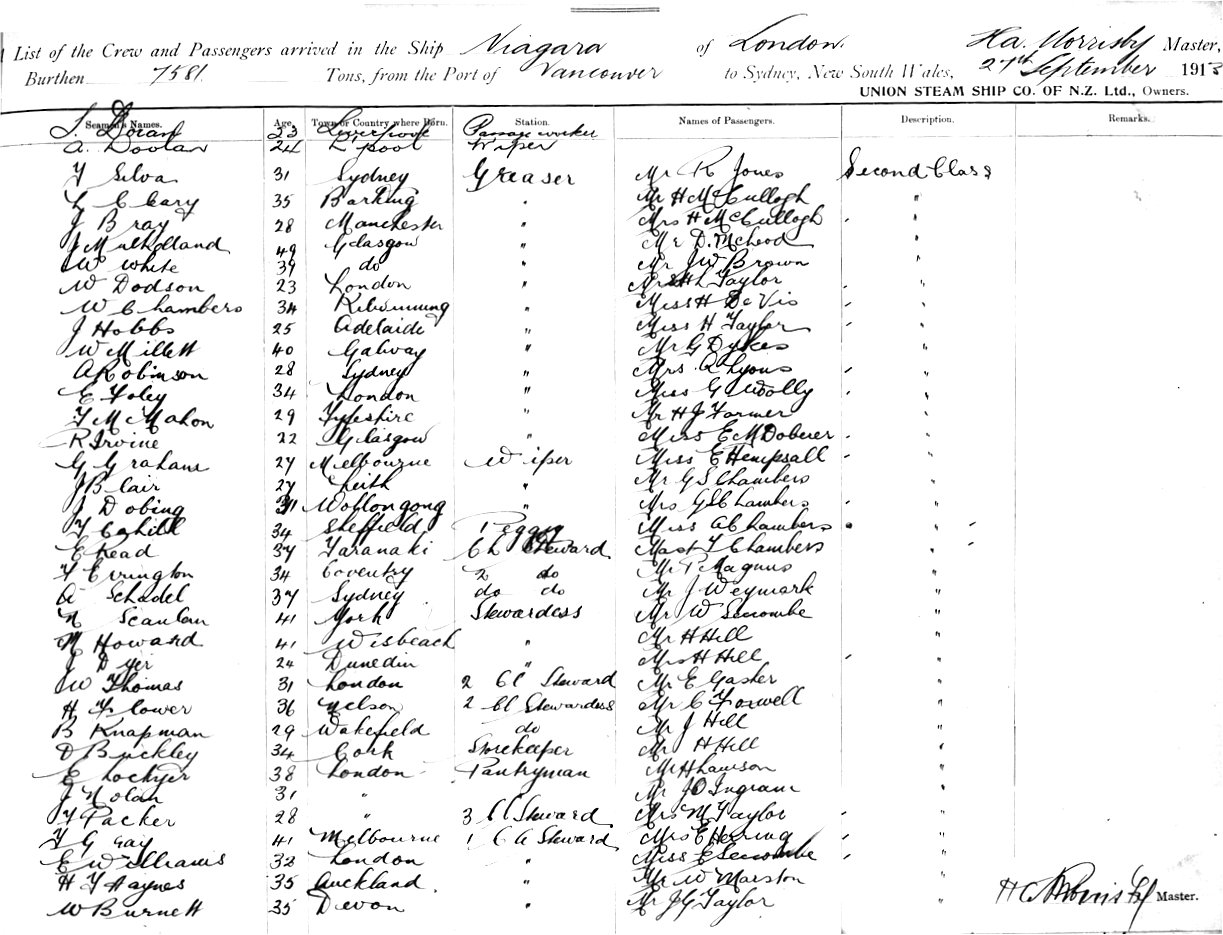 List of the Crew and Passengers arrived in the Ship Niagara of London. Master,
Burthen 7581 Tons, from the Port of Vancouver to Sydney, New South Wales, 27th September 1913
UNION STEAM SHIP CO. OF N.Z. Ltd., Owners.
Seamen's Names. Age. Town or Country where Born. Station. Names of Passengers. Description. Remarks.
Doran 23 Liverpool Passage worker
A. Doolan 24 L'pool Wiper
F Silva 31 Sydney Greaser Mr R Jones Second Class
Cary 35 Barking " Mr H McCullogh "
J Bray 28 Manchester " Mrs H McCullogh "
J Mulholland 49 Glasgow " Mr D. McLeod "
W White 39 do " Mr J W Brown "
W Dodson 23 London " H L Taylor "
W Chambers 34 " Miss H De Vis "
J Hobbs 25 Adelaide " Miss H Taylor "
W Millett 40 Galway " Mr G Dykes "
A Robinson 28 Sydney " Mrs A Lyons "
E Foley 34 London " Miss G Woolly "
F McMahon 29 Fyfeshire " Mr H J Farmer "
R Irvine 22 Glasgow " Miss E M Doberer "
G Graham 27 Melbourne Wiper Miss E Hempsall "
J Blair 27 Leith " Mr G S Chambers "
J Dobing 31 Wollongong " Mrs G S Chambers "
Cahill 34 Sheffield Peggy Miss A Chambers "
E Read 37 Taranaki Steward Mast Chambers "
F Evington 34 Coventry 2 do Mr P Magnus "
A Schadel 37 Sydney do do Mr J Weymark "
N Scanlan 41 York Stewardess Mr W Secombe "
M Howard 41 Wisbeach " Mr H Hill "
J Dyer 24 Dunedin " Mrs H Hill "
W Thomas 31 London 2 Cl Steward Mr E Gasker "
H Flower 36 Nelson 2 Cl Stewardess Mr C Foxwell "
B Knapman 29 Wakefield do Mr J Hill "
D Buckley 34 Cork Storekeeper Mr H Hill "
E Lockyer 38 London Pantryman Mr H Lawson "
J Nolan 31 " Mr J O Ingram "
F Packer 28 " 3 Cl Steward Mrs M Taylor "
F G Gay 41 Melbourne 1 Cl Steward Mrs E Herring "
E Williams 32 London " Miss E Secombe "
H F Haynes 35 Auckland " Mr W Marston "
W Burnett 35 Devon " Mr J G Taylor "
Master.